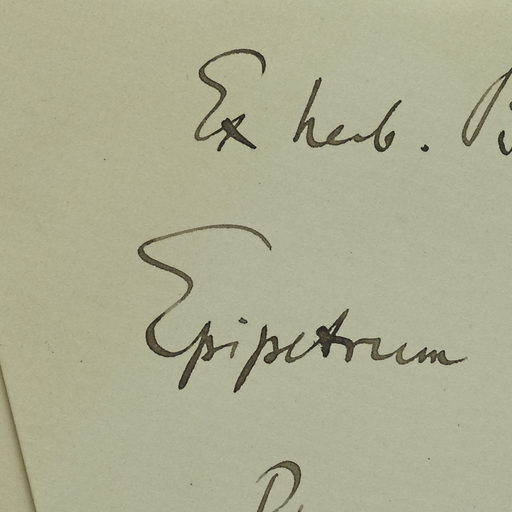 Ex herb.
Epipetrum